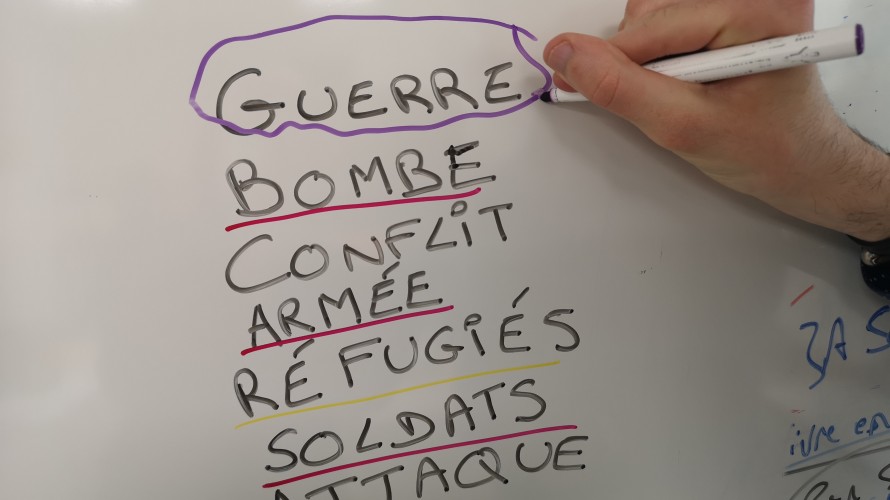 GUERRE
BOMBE
CONFLiT
ARMÉE
RÉFUGiÉS
SOLDATS
ATTAQUE